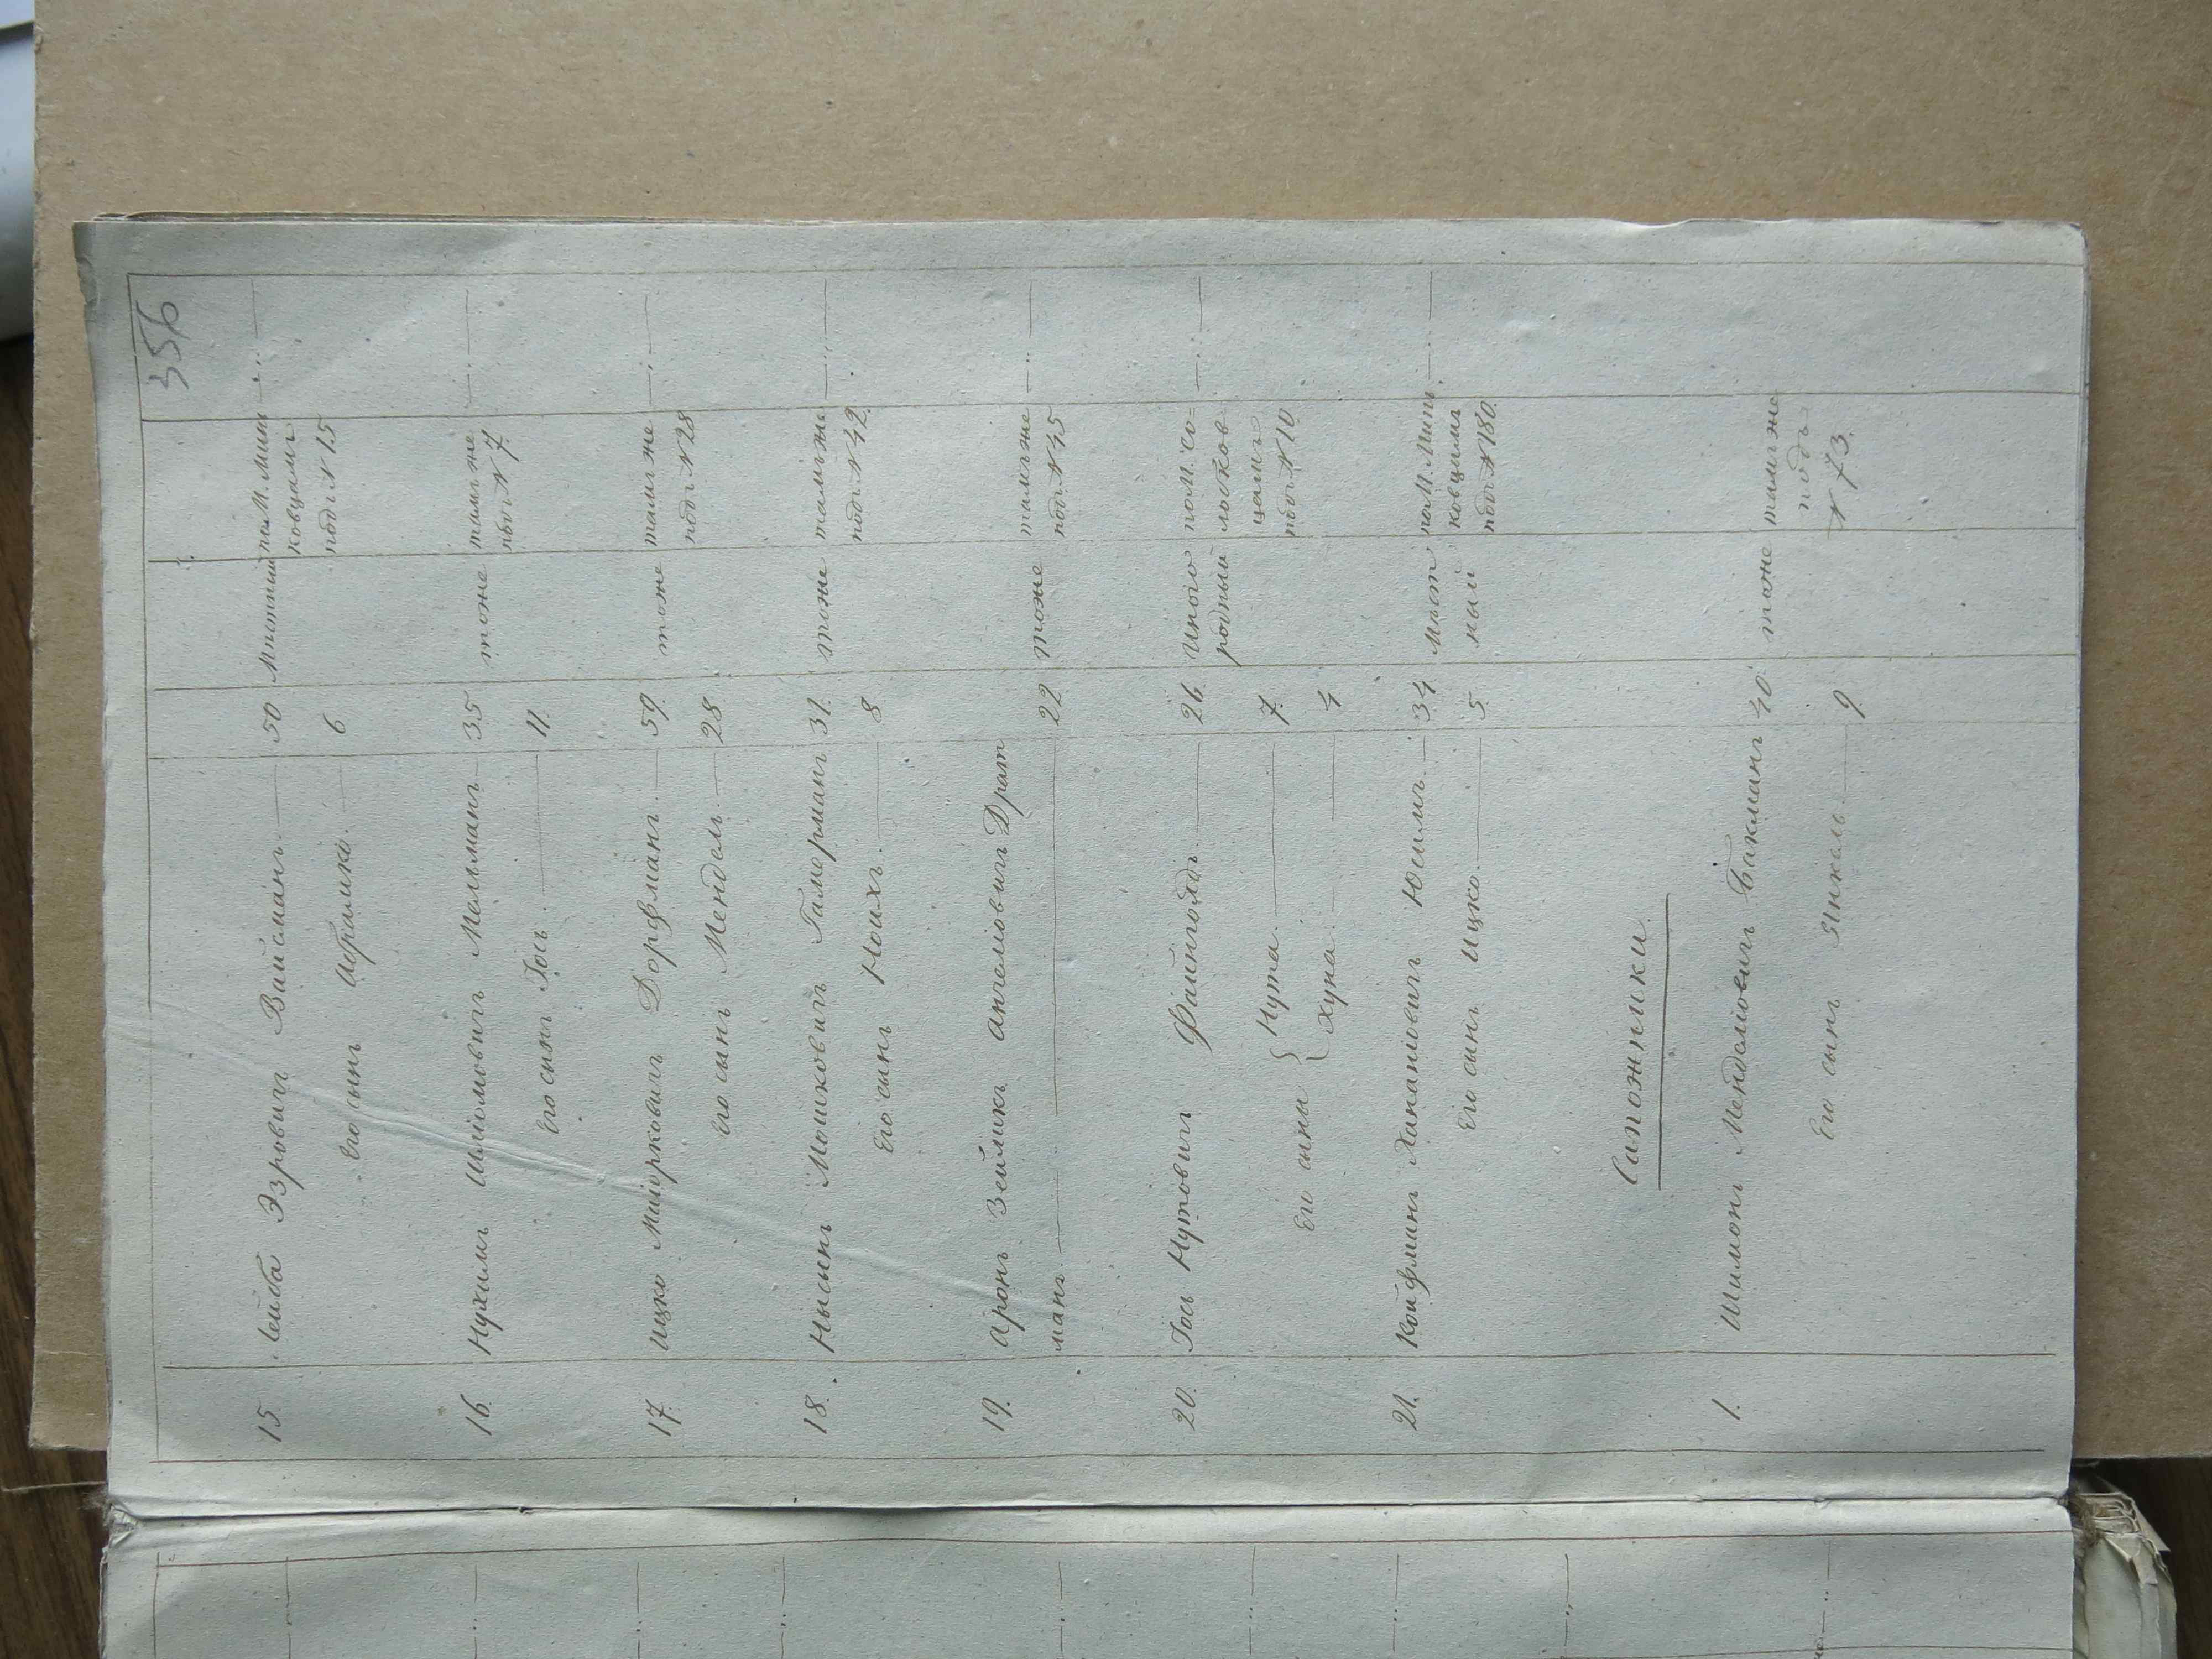 356
15. Лейба Эзровичъ Вайсманъ 50 Мѣстный по М. Минь
ковцамъ
Его сынъ Абрамко. 6 подъ N 15
16. Нухимъ Шліомовичъ Мельманъ 35 тоже тамъ же
подъ N 7.
Его сынъ Іось 11.
17. Ицко Міюрковичъ Дорфманъ. 59. тоже тамъ же
подъ N 28
Его сынъ Мендель. 28.
18. Нысынъ Мошковичъ Гамерманъ 31. тоже тамъ же
подъ N 42.
Его сынъ Ноихъ. 8
19. Аронъ Зейликъ Анчеліовичъ Драт
манъ. 22 тоже тамъ же
подъ N 45
20. Іось Нутовичъ Файнгольдъ 26. Иного по М. Со=
родный лобков
Его сыны { Нута. 7. цамъ
подъ N 10
Хуна. 4
21. Койфманъ Ханановичъ Юсимъ. 34. Мѣст по М. Минь
ный ковцамъ
Его сынъ Ицко. 5. подъ N 180.
Сапожники
1. Шимонъ Менделіовичъ Бакманъ 40. тоже тамъ же
подъ
Его сынъ Янкель. 9 N 73.